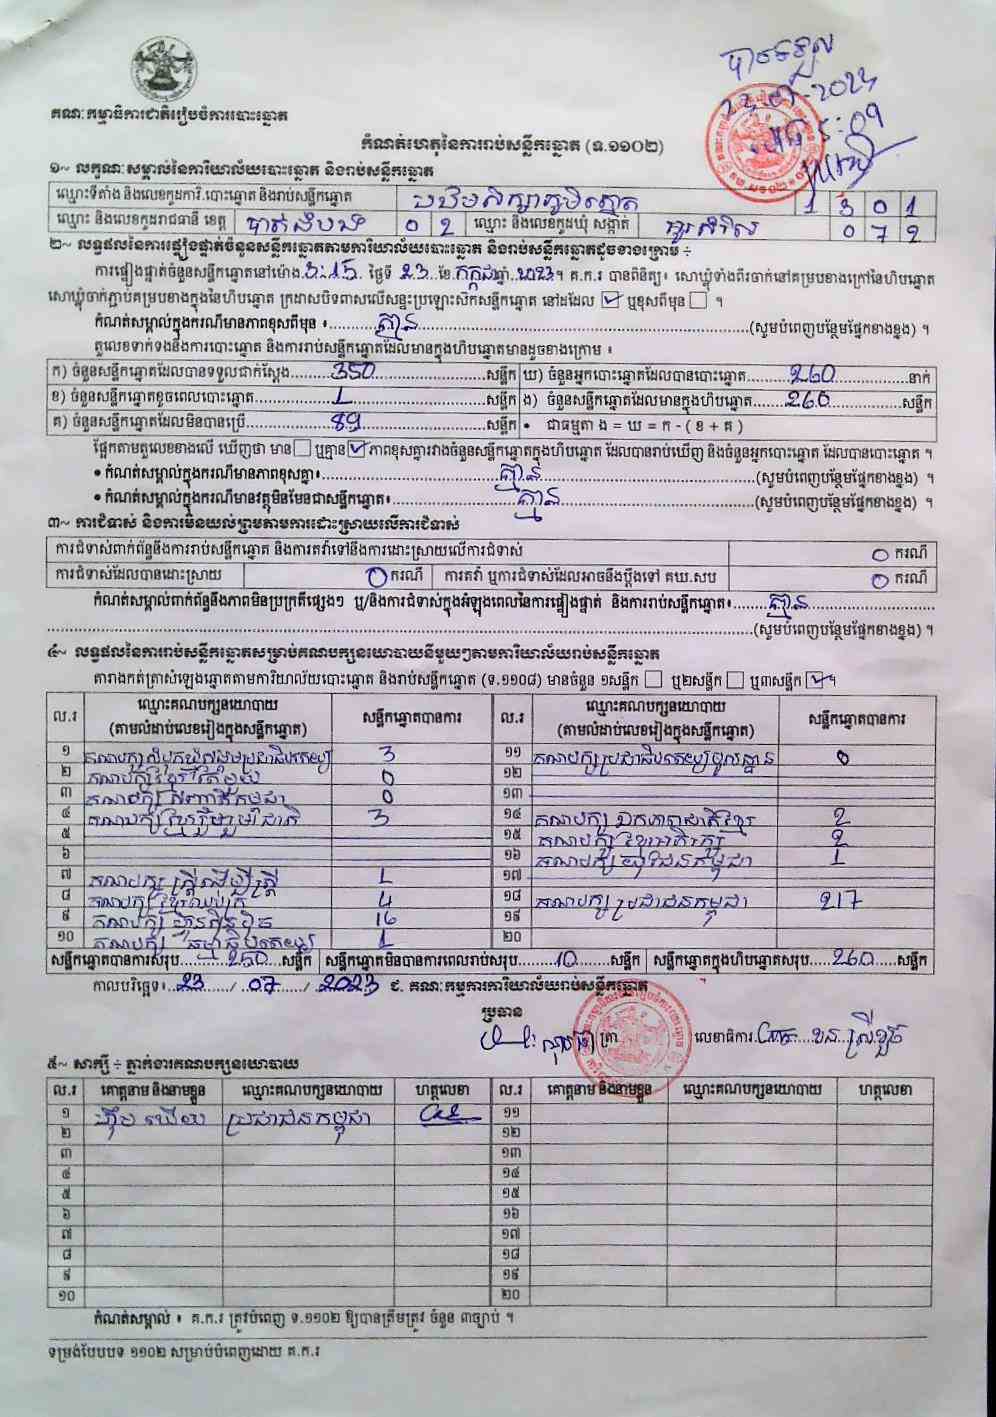 បានទទួល
គណៈកម្មាធិការជាតិរៀបចំការបោះឆ្នោត
កំណត់ហេតុនៃការរាប់សន្លឹកឆ្នោត (ទ.១១០២)
១~ លក្ខណៈសម្គាល់នៃការិយាល័យបោះឆ្នោត និងរាប់សន្លឹកឆ្នោត
ឈ្មោះទីតាំង និងលេខកូដការិ.បោះឆ្នោត និងរាប់សន្លឹកឆ្នោត 1 3 0 1
ឈ្មោះ និងលេខកូដរាជធានី ខេត្ត បាត់ដំបង 0 2 ឈ្មោះ និងលេខកូដឃុំ សង្កាត់ អូរសំរិល 0 7 2
២~ លទ្ធផលនៃការផ្ទៀងផ្ទាត់ចំនួនសន្លឹកឆ្នោតតាមការិយាល័យបោះឆ្នោត និងរាប់សន្លឹកឆ្នោតដូចខាងក្រោម ÷
ការផ្ទៀងផ្ទាត់ចំនួនសន្លឹកឆ្នោតនៅម៉ោង 3:15 ថ្ងៃទី 23 ខែ កក្កដា ឆ្នាំ 2023 ។ គ.ក.រ បានពិនិត្យ៖ សោឃ្លុំទាំងពីរចាក់នៅគម្របខាងក្រៅនៃហិបឆ្នោត
សោឃ្លុំចាក់ភ្ជាប់គម្របខាងក្នុងនៃហិបឆ្នោត ក្រដាសបិទពាសលើសន្ទះប្រឡោះសឹកសន្លឹកឆ្នោត នៅដដែល ☑ ឬខុសពីមុន ☐ ។
កំណត់សម្គាល់ក្នុងករណីមានភាពខុសពីមុន ៖ គ្មាន (សូមបំពេញបន្ថែមផ្នែកខាងខ្នង) ។
តួលេខទាក់ទងនឹងការបោះឆ្នោត និងការរាប់សន្លឹកឆ្នោតដែលមានក្នុងហិបឆ្នោតមានដូចខាងក្រោម ៖
ក) ចំនួនសន្លឹកឆ្នោតដែលបានទទួលជាក់ស្តែង 350 សន្លឹក ឃ) ចំនួនអ្នកបោះឆ្នោតដែលបានបោះឆ្នោត 260 នាក់
ខ) ចំនួនសន្លឹកឆ្នោតខូចពេលបោះឆ្នោត 1 សន្លឹក ង) ចំនួនសន្លឹកឆ្នោតដែលមានក្នុងហិបឆ្នោត 260 សន្លឹក
គ) ចំនួនសន្លឹកឆ្នោតដែលមិនបានប្រើ 89 សន្លឹក • ជាធម្មតា ង = ឃ = ក - ( ខ + គ )
ផ្អែកតាមតួលេខខាងលើ ឃើញថា មាន ☐ ឬគ្មាន ☑ ភាពខុសគ្នារវាងចំនួនសន្លឹកឆ្នោតក្នុងហិបឆ្នោត ដែលបានរាប់ឃើញ និងចំនួនអ្នកបោះឆ្នោត ដែលបានបោះឆ្នោត ។
• កំណត់សម្គាល់ក្នុងករណីមានភាពខុសគ្នា៖ គ្មាន (សូមបំពេញបន្ថែមផ្នែកខាងខ្នង) ។
• កំណត់សម្គាល់ក្នុងករណីមានវត្ថុមិនមែនជាសន្លឹកឆ្នោត៖ គ្មាន (សូមបំពេញបន្ថែមផ្នែកខាងខ្នង) ។
៣~ ការជំទាស់ និងការមិនយល់ព្រមតាមការដោះស្រាយលើការជំទាស់
ការជំទាស់ពាក់ព័ន្ធនឹងការរាប់សន្លឹកឆ្នោត និងការតវ៉ាទៅនឹងការដោះស្រាយលើការជំទាស់ 0 ករណី
ការជំទាស់ដែលបានដោះស្រាយ 0 ករណី ការតវ៉ា ឬការជំទាស់ដែលអាចនឹងប្តឹងទៅ គឃ.សប 0 ករណី
កំណត់សម្គាល់ពាក់ព័ន្ធនឹងភាពមិនប្រក្រតីផ្សេងៗ ឬ/និងការជំទាស់ក្នុងអំឡុងពេលនៃការផ្ទៀងផ្ទាត់ និងការរាប់សន្លឹកឆ្នោត៖ គ្មាន
(សូមបំពេញបន្ថែមផ្នែកខាងខ្នង) ។
៤~ លទ្ធផលនៃការរាប់សន្លឹកឆ្នោតសម្រាប់គណបក្សនយោបាយនីមួយៗតាមការិយាល័យរាប់សន្លឹកឆ្នោត
តារាងកត់ត្រាសំឡេងឆ្នោតតាមការិយាល័យបោះឆ្នោត និងរាប់សន្លឹកឆ្នោត (ទ.១១០៨) មានចំនួន ១សន្លឹក ☐ ឬ២សន្លឹក ☐ ឬ៣សន្លឹក ☑ ។
ល.រ ឈ្មោះគណបក្សនយោបាយ (តាមលំដាប់លេខរៀងក្នុងសន្លឹកឆ្នោត) សន្លឹកឆ្នោតបានការ ល.រ ឈ្មោះគណបក្សនយោបាយ (តាមលំដាប់លេខរៀងក្នុងសន្លឹកឆ្នោត) សន្លឹកឆ្នោតបានការ
១ គណបក្សសំបុកឃ្មុំសង្គមប្រជាធិបតេយ្យ 3 ១១ គណបក្សប្រជាធិបតេយ្យមូលដ្ឋាន 0
២ គណបក្សខ្មែរតែមួយ 0 ១២
៣ គណបក្សសញ្ជាតិកម្ពុជា 0 ១៣
៤ គណបក្សខ្មែររួបរួមជាតិ 3 ១៤ គណបក្សឯកភាពជាតិខ្មែរ 2
៥ ១៥ គណបក្សខ្មែរអភិរក្ស 2
៦ ១៦ គណបក្សយុវជនកម្ពុជា 1
៧ គណបក្សស្ត្រីដើម្បីស្ត្រី 1 ១៧
៨ គណបក្សខ្មែរឈប់ក្រ 4 ១៨ គណបក្សប្រជាជនកម្ពុជា 217
៩ គណបក្សហ៊្វុនស៊ិនប៉ិច 16 ១៩
១០ គណបក្សធម្មាធិបតេយ្យ 1 ២០
សន្លឹកឆ្នោតបានការសរុប 250 សន្លឹក សន្លឹកឆ្នោតមិនបានការពេលរាប់សរុប 10 សន្លឹក សន្លឹកឆ្នោតក្នុងហិបឆ្នោតសរុប 260 សន្លឹក
កាលបរិច្ឆេទ៖ 23 / 07 / 2023 ជ. គណៈកម្មការការិយាល័យរាប់សន្លឹកឆ្នោត
ប្រធាន
ត្រា លេខាធិការ
៥~ សាក្សី ÷ ភ្នាក់ងារគណបក្សនយោបាយ
ល.រ គោត្តនាម និងនាមខ្លួន ឈ្មោះគណបក្សនយោបាយ ហត្ថលេខា ល.រ គោត្តនាម និងនាមខ្លួន ឈ្មោះគណបក្សនយោបាយ ហត្ថលេខា
១ ប្រជាជនកម្ពុជា ១១
២ ១២
៣ ១៣
៤ ១៤
៥ ១៥
៦ ១៦
៧ ១៧
៨ ១៨
៩ ១៩
១០ ២០
កំណត់សម្គាល់ ៖ គ.ក.រ ត្រូវបំពេញ ទ.១១០២ ឱ្យបានត្រឹមត្រូវ ចំនួន ៣ច្បាប់ ។
ទម្រង់បែបបទ ១១០២ សម្រាប់បំពេញដោយ គ.ក.រ